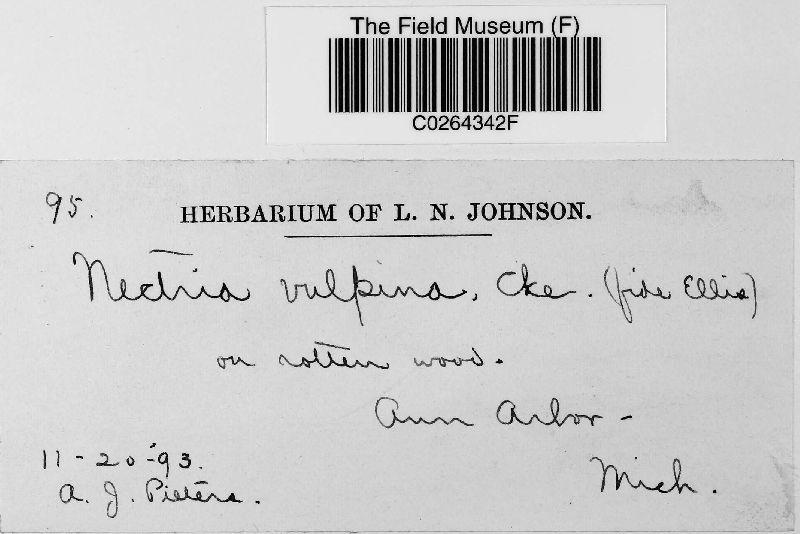 The Field Museum (F)
C0264342F
95.
HERBARIUM OF L. N. JOHNSON.
Nectria vulpina, Cke. (fide Ellis)
on rotten wood.
Ann Arbor -
Mich.
11-20-'93.
A. J. Pieters.